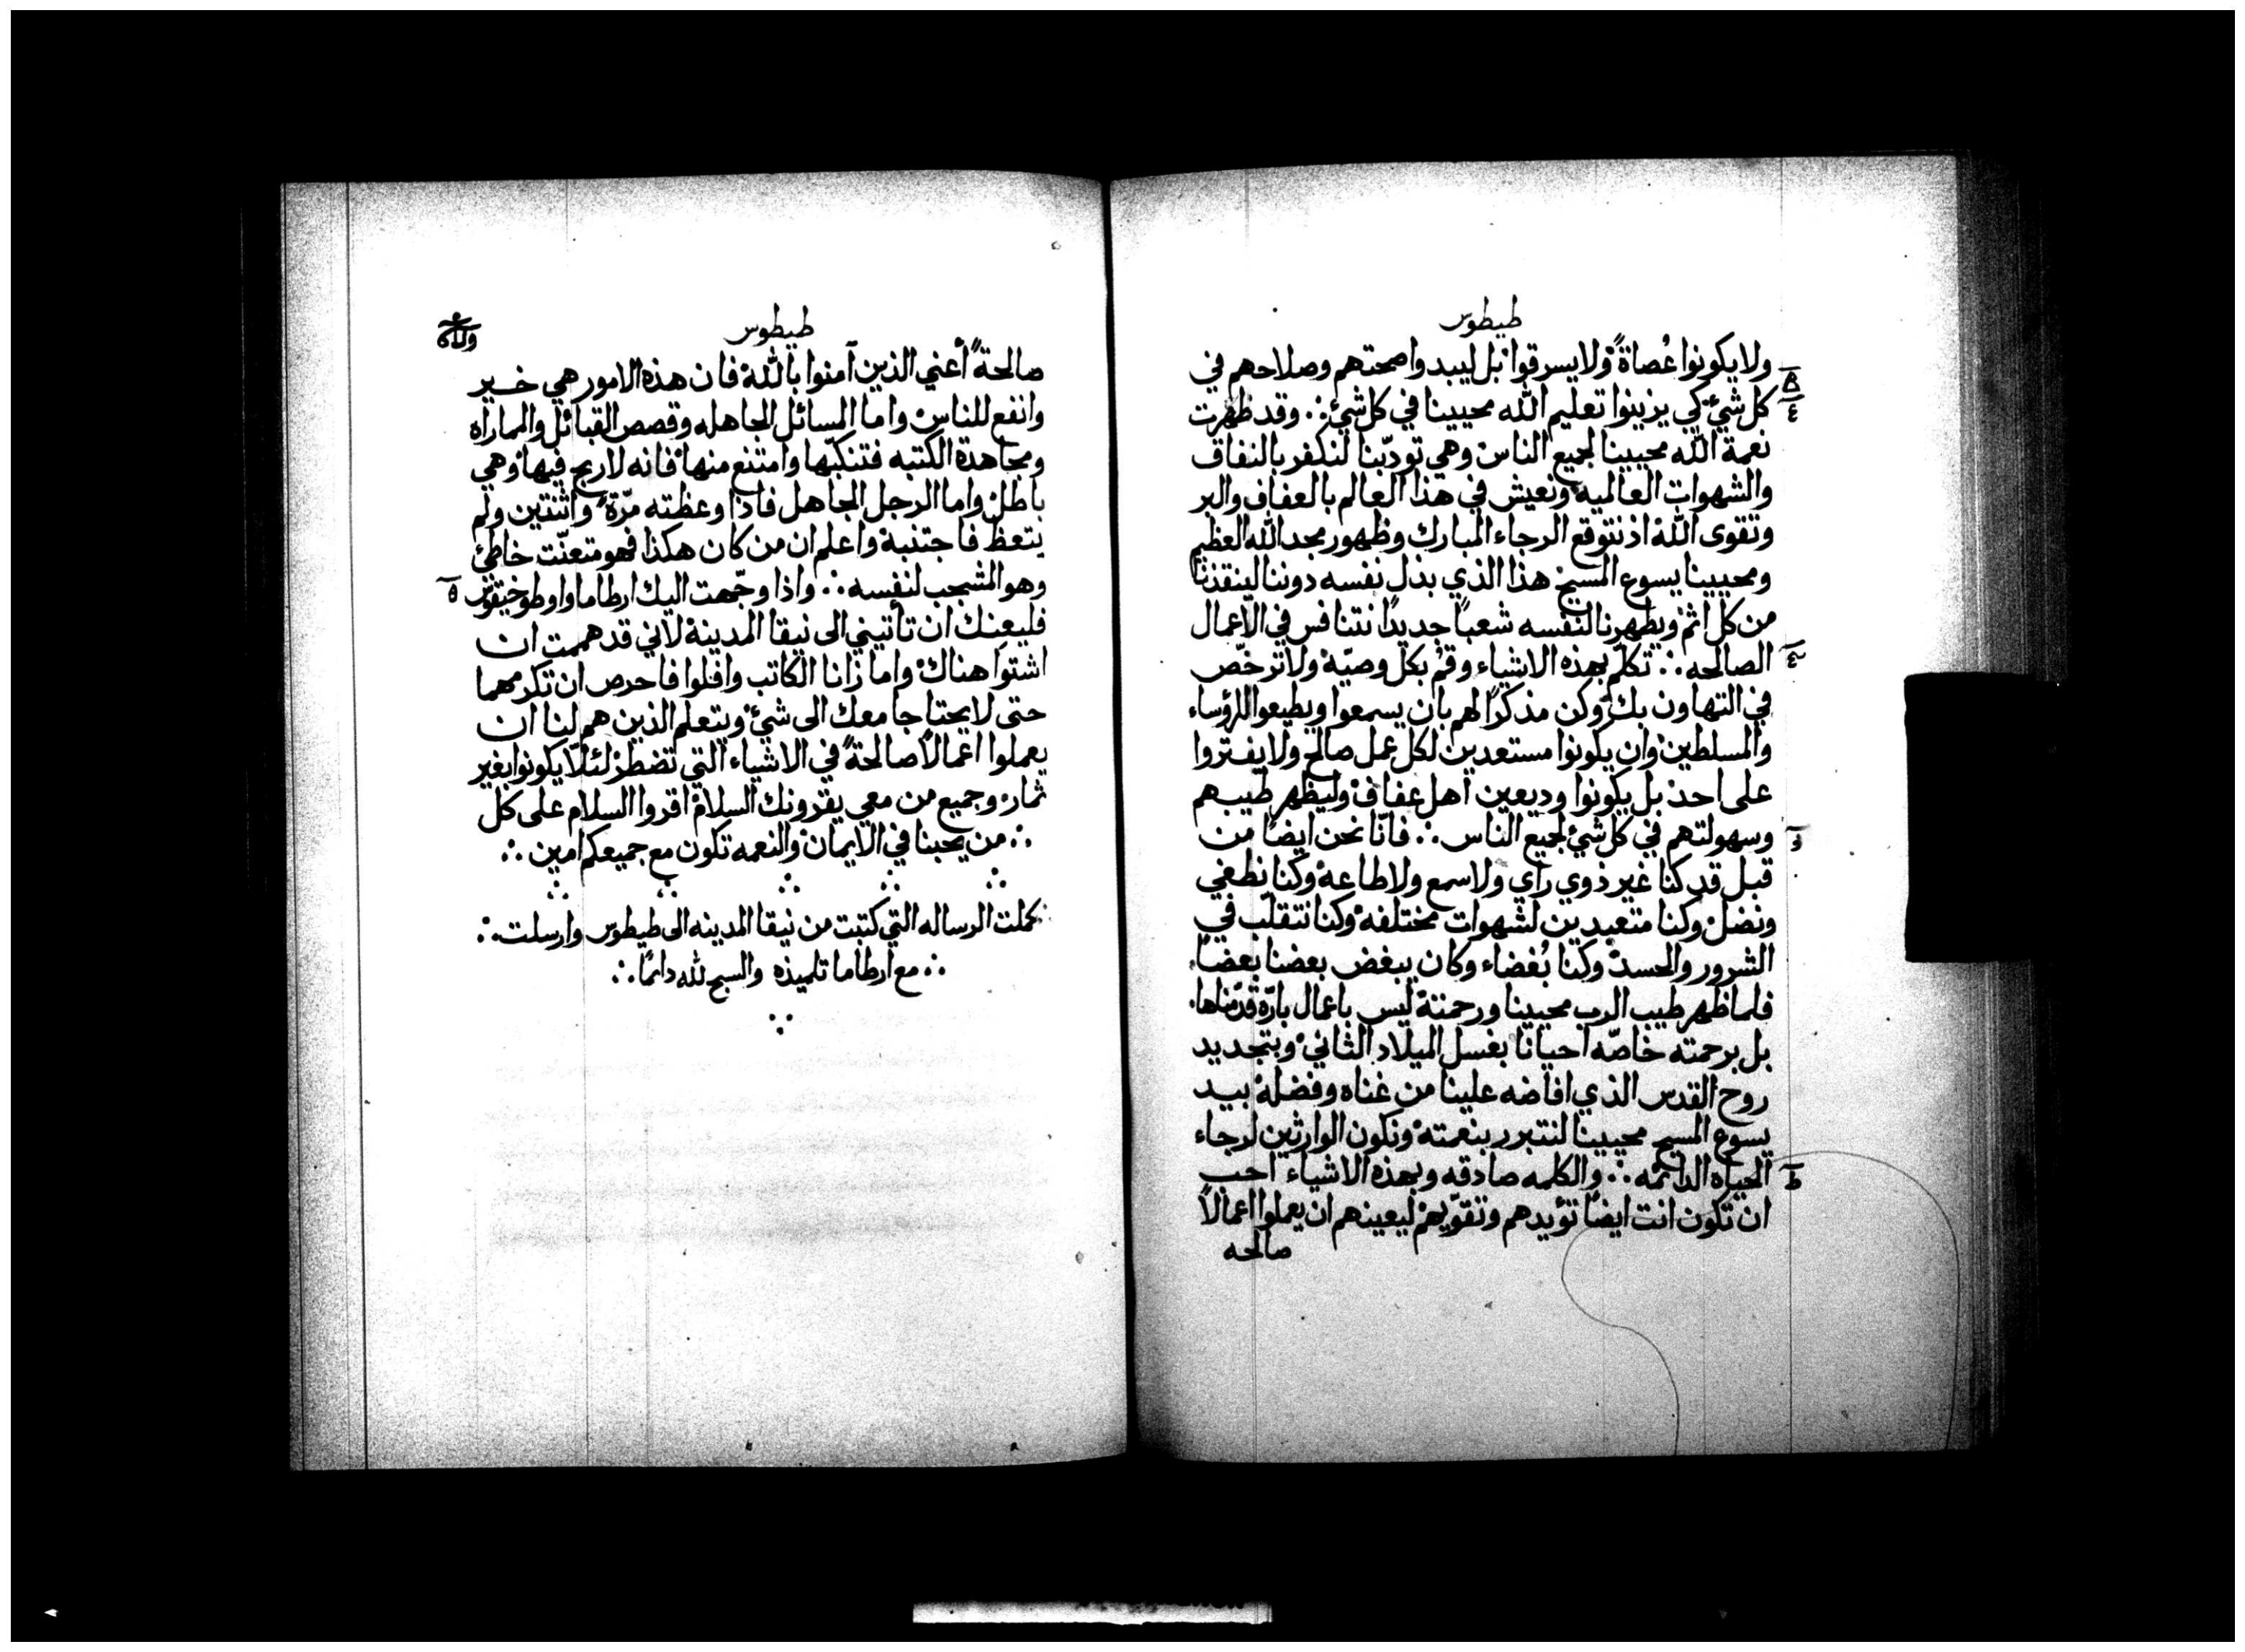 طيطوس
ولا يكونوا عُصاةً ولا يسرقوا بل ليبدوا صحتهم وصلاحهم في
كل شيءٍ كي يزينوا تعليم الله محيينا في كل شيءٍ ∴ وقد ظهرت
نعمة الله محيينا لجميع الناس وهي تودّبنا لنكفر بالنفاق
والشهوات العالميه ونعيش في هذا العالم بالعفاف والبر
وتقوى الله اذ نتوقع الرجاء المبارك وظهور مجد الله العظيم
ومحيينا يسوع المسيح هذا الذي بذل نفسه دوننا لينقذنا
من كل اثم ويطهرنا لنفسه شعباً جديدًا نتنافس في الاعمال
الصالحه ∴ تكلم بهذه الاشياء وقم بكل وصيّة ولا ترخّص
في التهاون بك وكن مذكرًا لهم بان يسمعوا ويطيعوا للرؤساء
والمسلطين وان يكونوا مستعدين لكل عمل صالح ولا يفتروا
على احد بل يكونوا وديعين اهل عفاف وليظهر طيبهم
وسهولتهم في كل شيءٍ لجميع الناس ∴ فانّا نحن ايضًا من
قبل قد كنا غير ذوي راي ولا سمع ولا طاعة وكنا نطغي
ونضل وكنا متعبدين لشهوات مختلفه وكنا نتقلّب في
الشرور والحسد وكنا بُغضاء وكان يبغض بعضنا بعضًا
فلما ظهر طيب الرب محيينا ورحمتة ليس باعمال بارّه قدّمناها
بل برحمته خاصّه احيانا بغسل الميلاد الثاني وبتجديد
روح القدس الذي افاضه علينا من غناه وفضلة بيد
يسوع المسيح محيينا لنتبرر بنعمتة ونكون الوارثين لرجاء
الحياه الدائمه ∴ والكلمه صادقه وبهذه الاشياء احب
ان تكون انت ايضًا تؤيدهم وتقوّيهم ليعينهم ان يعملوا اعمالاً
صالحه
طيطوس
صالحةً أعني الذين آمنوا بالله فان هذه الامور هي خير
وانفع للناس واما المسائل الجاهله وقصص القبائل والماراه
ومجاهدة الكتبه فتنكبّها وامتنع منها فانه لا ربح فيها وهي
باطل واما الرجل الجاهل فاذا وعظته مرّة واثنتين ولم
يتعظ فاجتنبة واعلم ان من كان هكذا فهو متعنّت خاطئ
وهو المشجب لنفسه ∴ واذا وجّهت اليك ارطاما او طوخيقوس ٥
فليعنك ان تأتيني الى نيقا المدينة لاني قد هممت ان
اشتوا هناك واما زانا الكاتب وافلوا فاحرص ان تكرمهما
حتى لا يحتاجا معك الى شيءٍ ويتعلم الذين هم لنا ان
يعملوا اعمالاً صالحةً في الاشياء التي تضطر لئلّا يكونوا بغير
ثمار وجميع من معي يقرونك السلام اقروا السلام على كل
∴ من يحبنا في الايمان والنعمه تكون مع جميعكم امين ∴
كملت الرساله التي كتبت من نيقا المدينه الى طيطوس وارسلت ∴
∴ مع ارطاما تلميذه والسبح لله دائمًا ∴